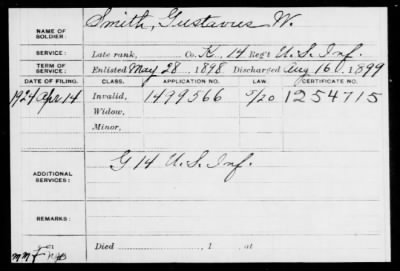 NAME OF SOLDIER: Smith, Gustavus W.
SERVICE: Late rank, Co. K, 14 Reg't U. S. Inf.
TERM OF SERVICE: Enlisted May 28 1898 Discharged Aug 16, 1899
DATE OF FILING. CLASS. APPLICATION NO. LAW. CERTIFICATE NO.
1924 Apr 14 Invalid, 1499566 5/20 1254715
Widow,
Minor,
ADDITIONAL SERVICES: G 14 U. S. Inf.
REMARKS:
Died 1 , at